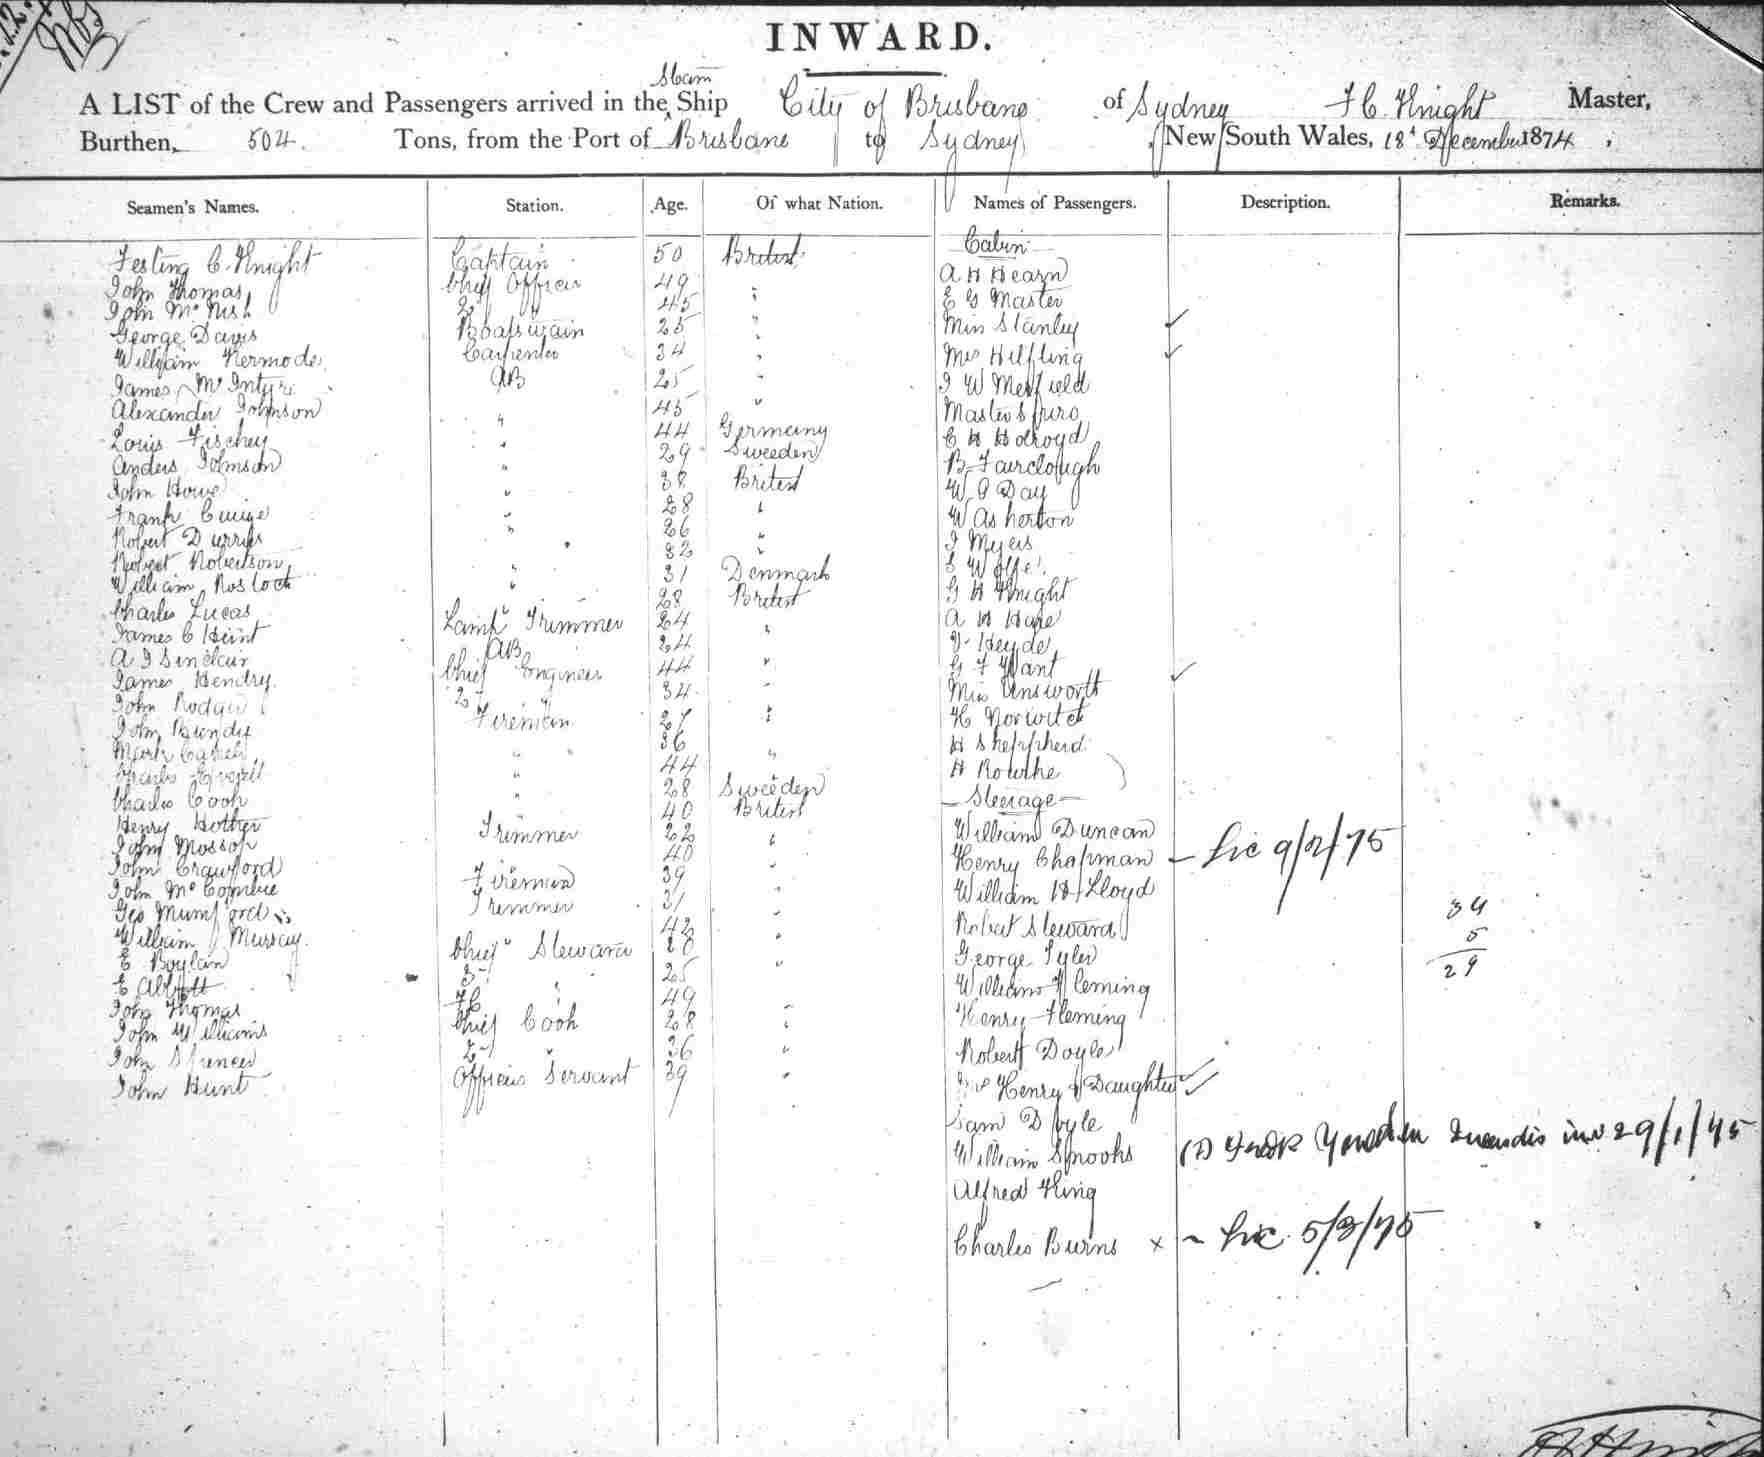 INWARD.
Steam
A LIST of the Crew and Passengers arrived in the Ship City of Brisbane of Sydney F C Knight Master,
Burthen, 504. Tons, from the Port of Brisbane to Sydney, New South Wales, 18t December 1874.
Seamen's Names. Station. Age. Of what Nation. Names of Passengers. Description. Remarks.
Cabin
Festing C. Knight Captain 50 British
A H Hearn
John Thomas Chief Officer 49 "
E G Master
John McNish 2 " 45 "
George Davis Boatswain 25 "
Miss Stanley ✓
William Kermode Carpenter 34 "
Mrs Hilfling ✓
James McIntyre AB 25 "
Alexander Johnson 45 "
Master Spiro
Louis " 44 Germany
C H Holroyd
Anders Johnson " 29 Sweeden
B Fairclough
John Howe " 38 British
W Day
Frank " 28 "
W Asherton
Robert " 26 "
J Myers
Robert Robertson 32 "
William Rostock " 31 Denmark
G H Knight
Charles Lucas " 28 British
A H
James C Hunt Lamp Trimmer 24 "
Heyde
A J Sinclair AB 24 "
G F Want
James Hendry Chief Engineer 44 "
Miss Unsworth ✓
John Rodger 2 " 34 "
H Norwitch
John Bundy Fireman 27 "
H Sheppherd
Mark 36 "
H Rourke
Charles " 44 "
Steerage
Charles Cook " 28 Sweeden
Henry Hother 40 British
William Duncan
John Mosson Trimmer 22 "
Henry Chapman
John Crawford 40
John McCombie Fireman 39 "
William H Lloyd
Geo Mumford Trimmer 31 "
34
William Murray 42 "
Robert Steward
5
E Boylan Chief Steward 20 "
George Tyler
29
E Abbott 25 "
William Fleming
John Thomas 49
John Williams Chief Cook 28 "
Henry Fleming
John Spencer 2 " 36 "
Robert Doyle
John Hunt Officers Servant 39 "
Henry & Daughter ✓ ✓
Sam Doyle
William Spooks 29/1/75
Alfred King
Charles Burns × 5/3/75